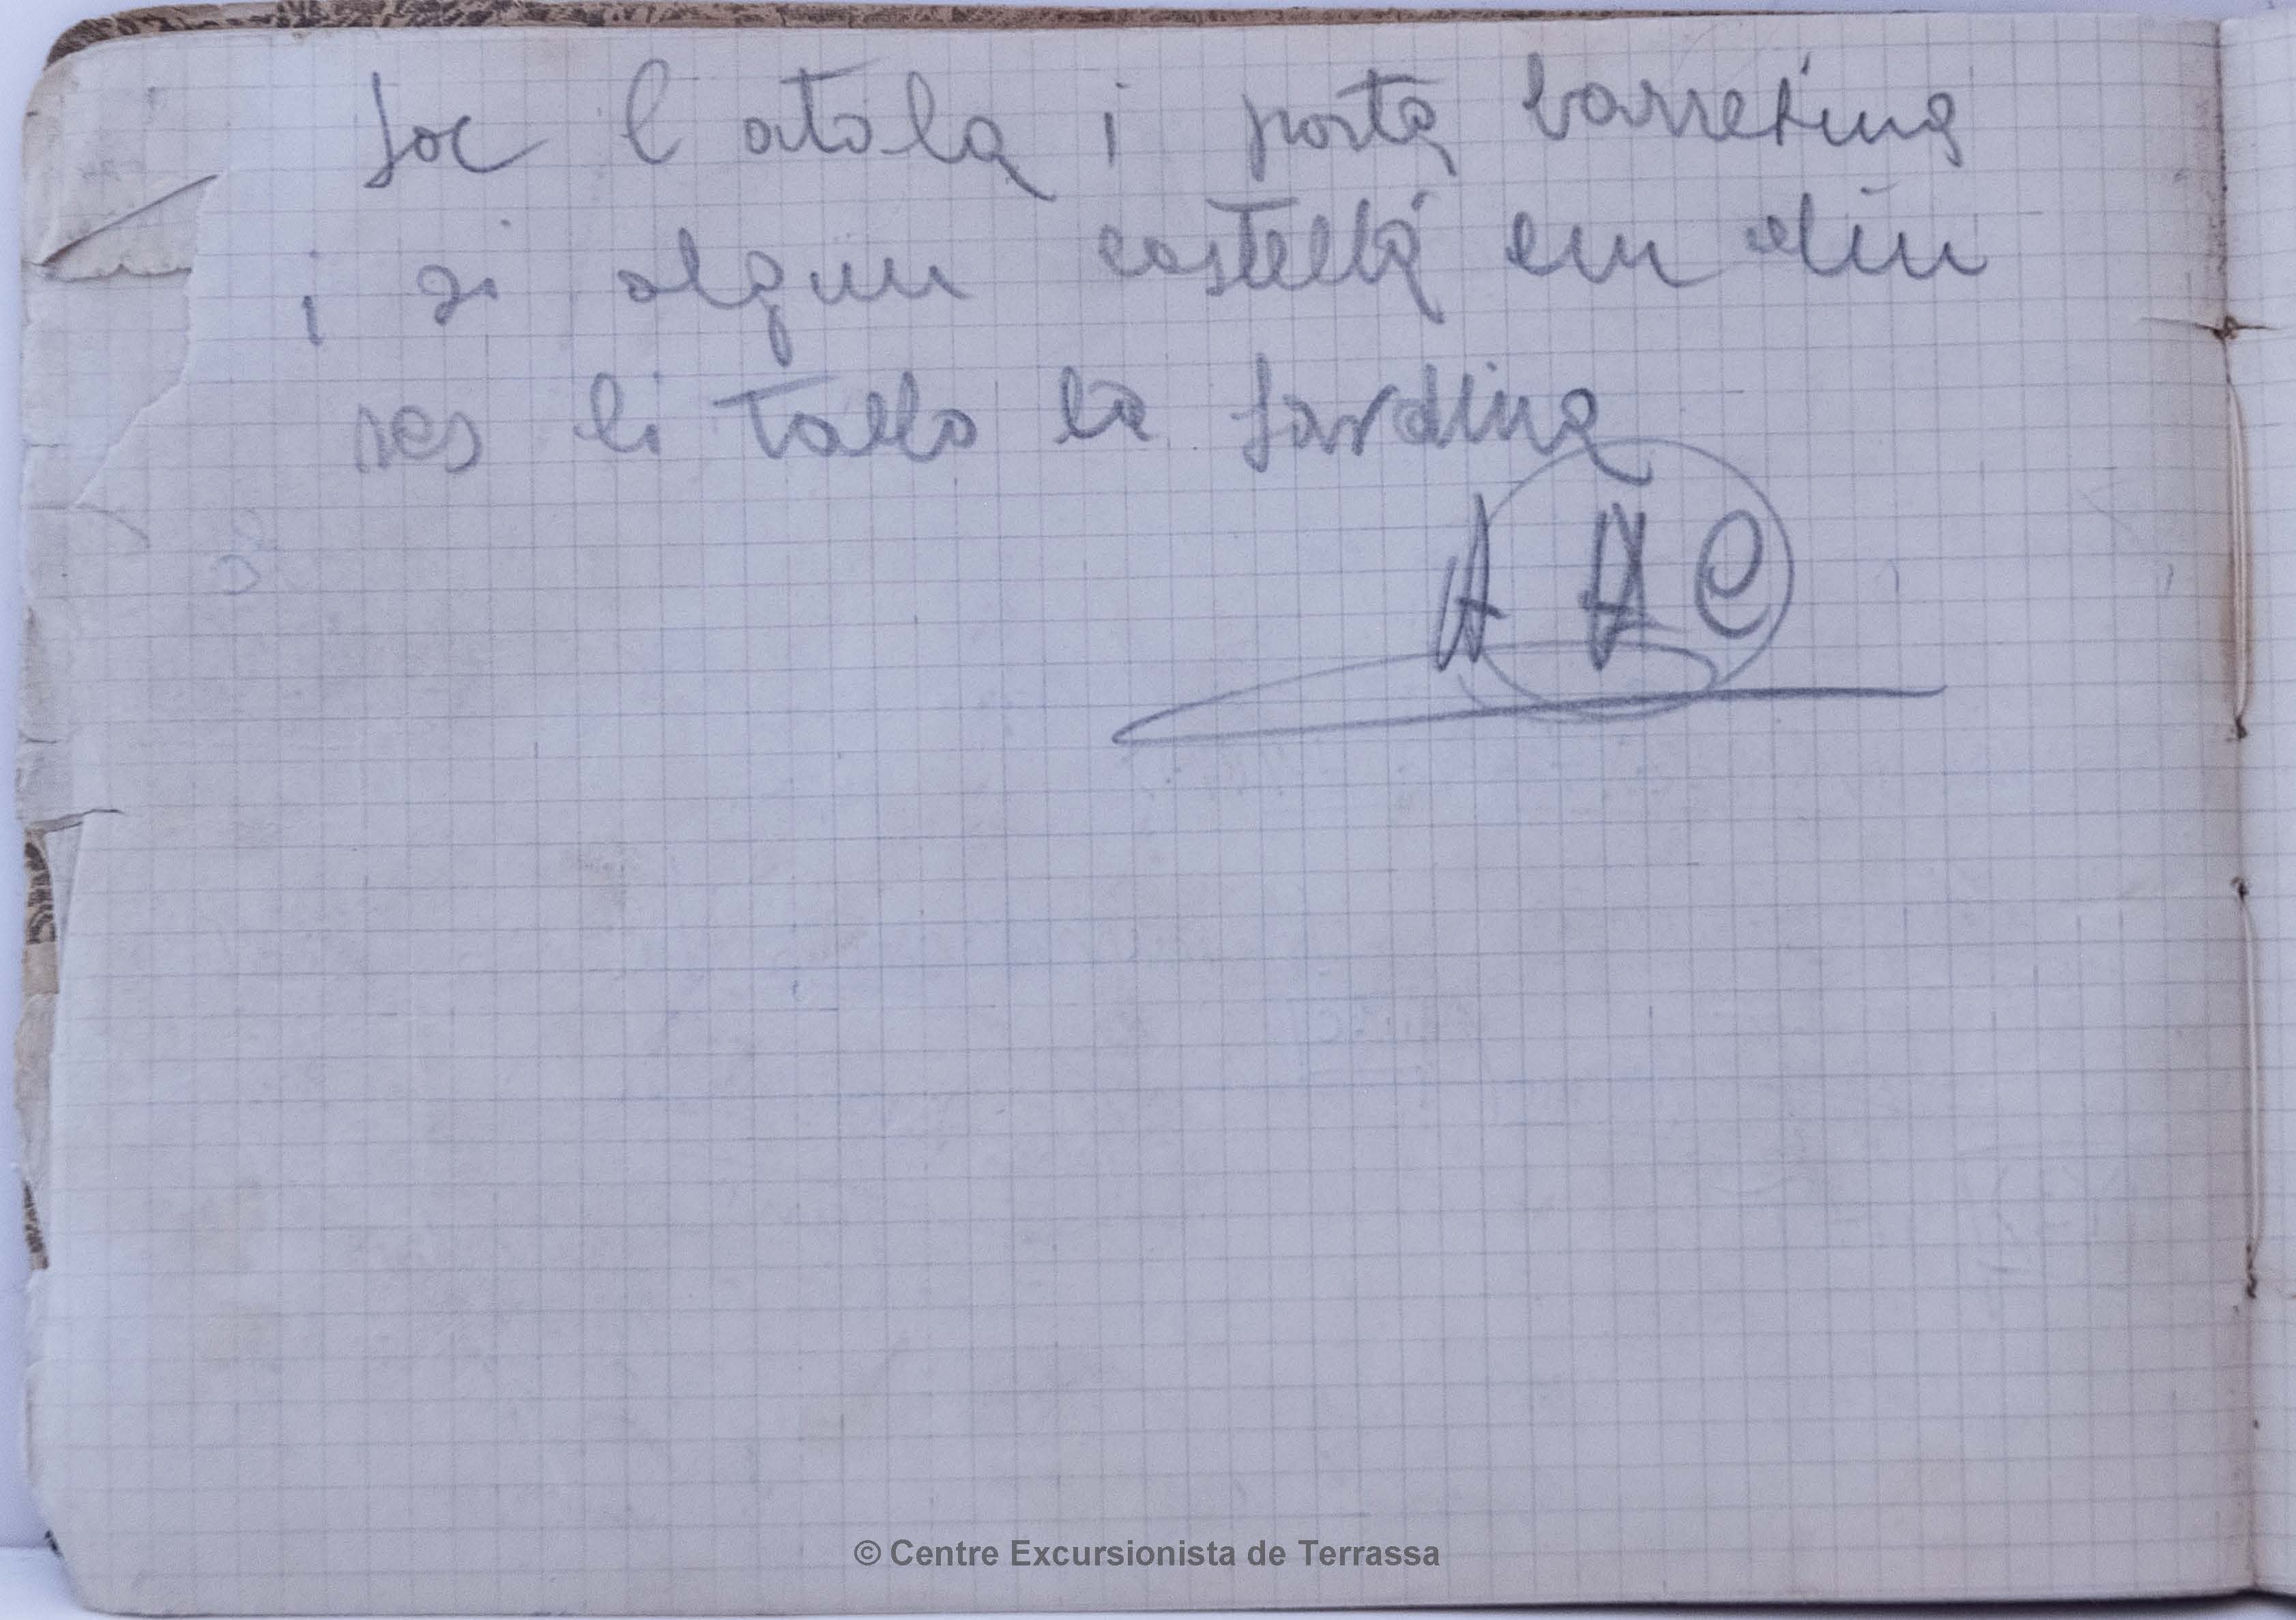 Soc Catala i porta barretina
i si algun castellà em diu
res li tallo la sardina
A A C
© Centre Excursionista de Terrassa